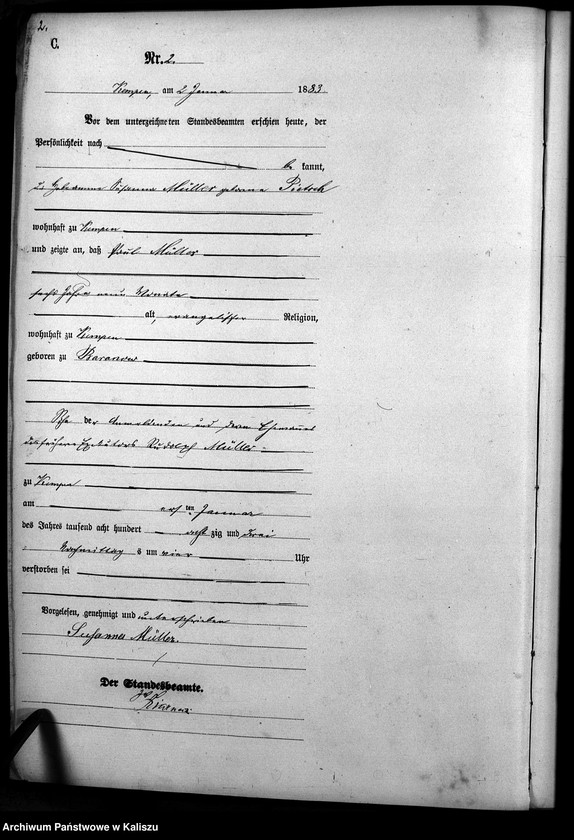 2.
C.
Nr. 2.
Kempen, am 2 Januar 1883.
Vor dem unterzeichneten Standesbeamten erschien heute, der
Persönlichkeit nach
be kannt,
die Hebamme Susanna Müller geborene Pietsch
wohnhaft zu Kempen
und zeigte an, daß Paul Müller
sechs Jahre neun Monate
alt, evangelischer Religion,
wohnhaft zu Kempen
geboren zu Baranow
Sohn der Anmeldenden und deren Ehemannes
des früheren Exekutors Rudolph Müller
zu Kempen
am ersten Januar
des Jahres tausend acht hundert acht zig und drei
Nachmittag s um vier Uhr
verstorben sei
Vorgelesen, genehmigt und unterschrieben
Susanna Müller.
Der Standesbeamte.
Archiwum Państwowe w Kaliszu